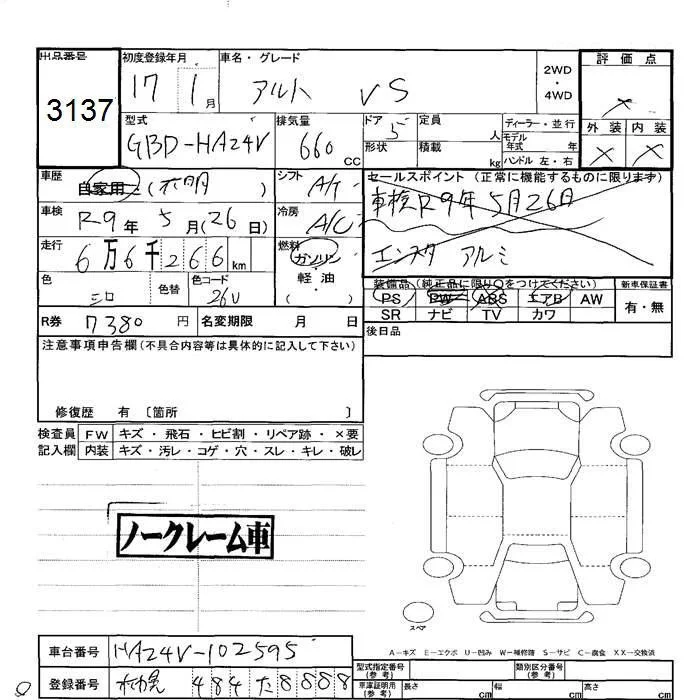 出品番号 初度登録年月 車名・グレード 評価点
3137 17 1月 アルト VS 2WD・4WD
外装 内装
型式 GBD-HA24V 排気量 660 CC ドア 5 定員 人 ディーラー・並行
形状 積載 kg モデル年式 年
ハンドル 左・右
車歴 自家用 (不明) シフト A/T セールスポイント (正常に機能するものに限ります)
車検 R9年 5月(26日) 冷房 A/C 車検R9年5月26日
走行 6万6千266km 燃料 ガソリン 軽・油 エンスタ アルミ
色 シロ 色替 色コード 26U 装備品(純正品に限り○をつけてください) 新車保証書
PS PW ABS エアB AW 有・無
SR ナビ TV カワ
R券 7380円 名変期限 月 日 後日品
注意事項申告欄(不具合内容等は具体的に記入して下さい)
修復歴 有 〔箇所 〕
検査員 FW キズ・飛石・ヒビ割・リペア跡・×要
記入欄 内装 キズ・汚レ・コゲ・穴・スレ・キレ・破レ
ノークレーム車
スペア
A-キズ E-エクボ U-凹み W-補修跡 S-サビ C-腐食 XX-交換済
車台番号 HA24V-102595
型式指定番号(参考) 類別区分番号(参考)
登録番号 札幌 484た8888
車庫証明用(参考) 長さ cm 幅 cm 高さ cm